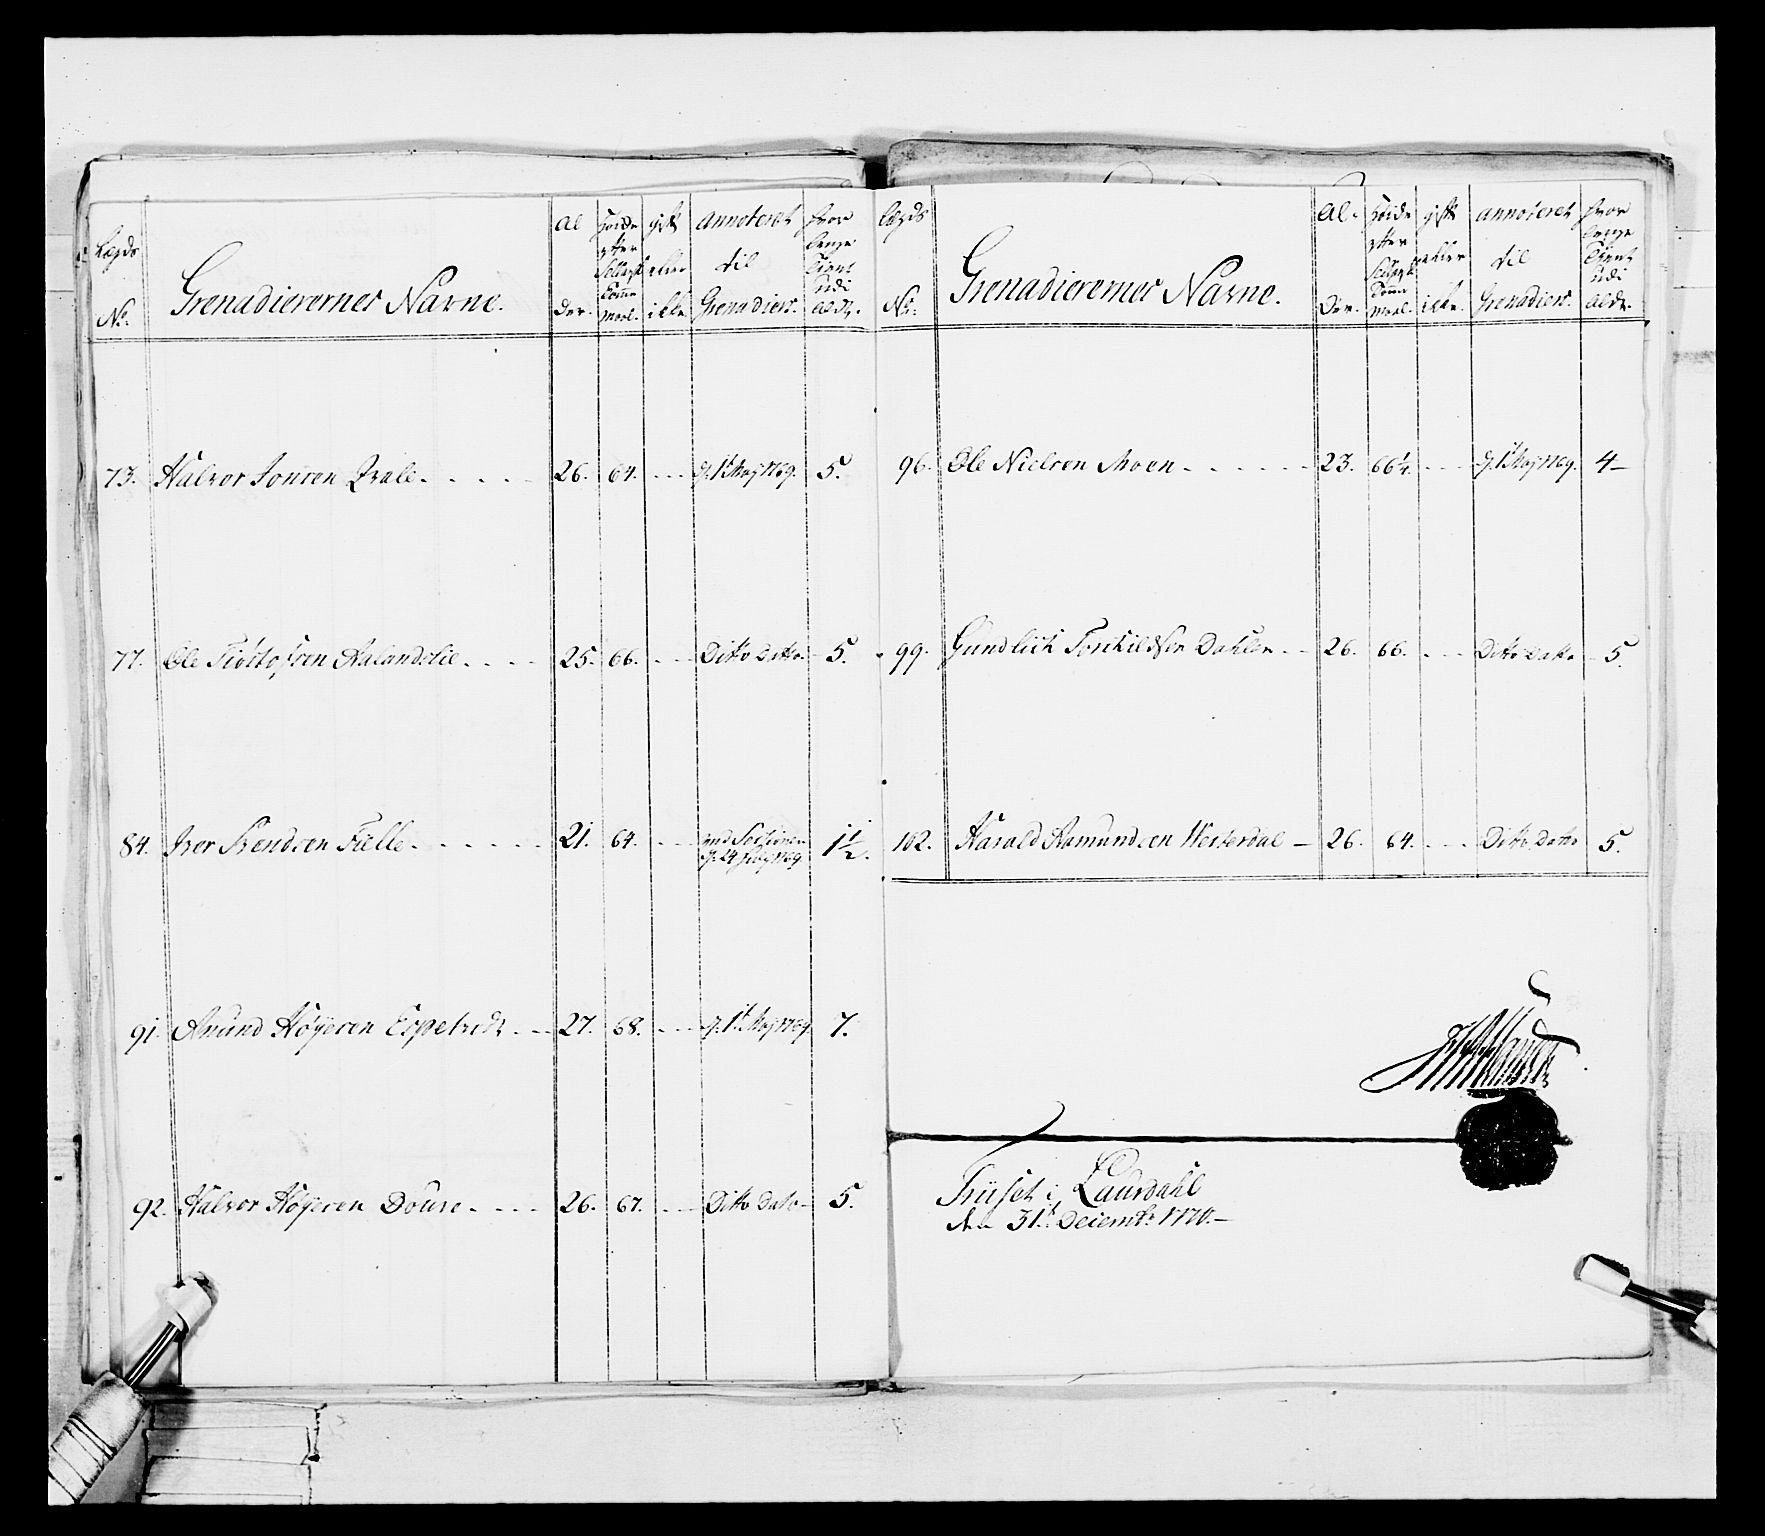 Lægds No: Grenadierernes Navne. Al der. Høide efter Sællandsk Tomme maal. gift eller ikke annoteret til Grenadier. hvor længe Tient udi alds.
73. Halvor Jonsen Qvale 26. 64. d. 1t Maj 1769. 5.
77. Ole Tiøstofsen Aalandslie 25. 66. Ditto Dato 5.
84. Iver Svendsen Fielle 21. 64. ved Sessionen d. 24 July 1769 1 1/2.
91. Anund Høyesen Espetvedt 27. 68. d. 1t Maj 1769 7.
92. Halvor Høyesen Doure 26. 67. Ditto Dato 5.
Lægds No: Grenadierernes Navne. Al- der. Høide efter Tomme maal. gift eller ikke. annoteret til Grenadier. hvor længe Tient udi alde.
96. Ole Nielsen Moen 23. 66 1/4. d. 1t Maj 1769. 4
99. Gundlich Torkildsen Dahlen 26. 66. Ditto Dato 5.
102. Harald Aamundsen Westerdal 26. 64. Ditto Dato 5.
Triiset i Laurdahl
den 31t Decembr: 1770.